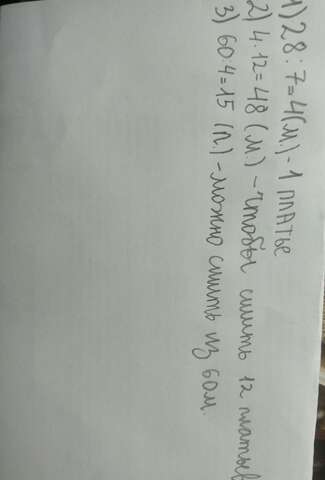 1) 28:7=4(м.)-1 платье
2) 4·12=48 (м.) - чтобы сшить 12 платьев
3) 60:4=15 (п.) - можно сшить из 60м.